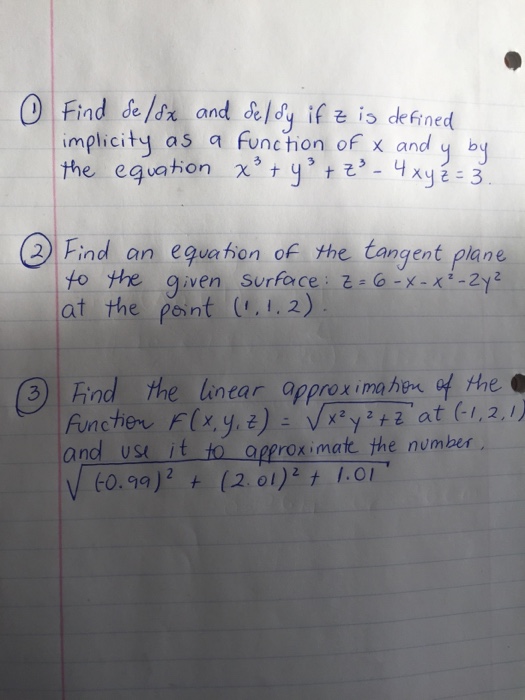 ① Find δe/δx and δe/δy if z is defined
implicity as a function of x and y by
the equation x³ + y³ + z³ - 4xyz = 3.
② Find an equation of the tangent plane
to the given surface: z = 6 - x - x² - 2y²
at the point (1, 1, 2).
③ Find the linear approximation of the
function F(x, y, z) = √x²y² + z at (-1, 2, 1)
and use it to approximate the number.
√(-0.99)² + (2.01)² + 1.01